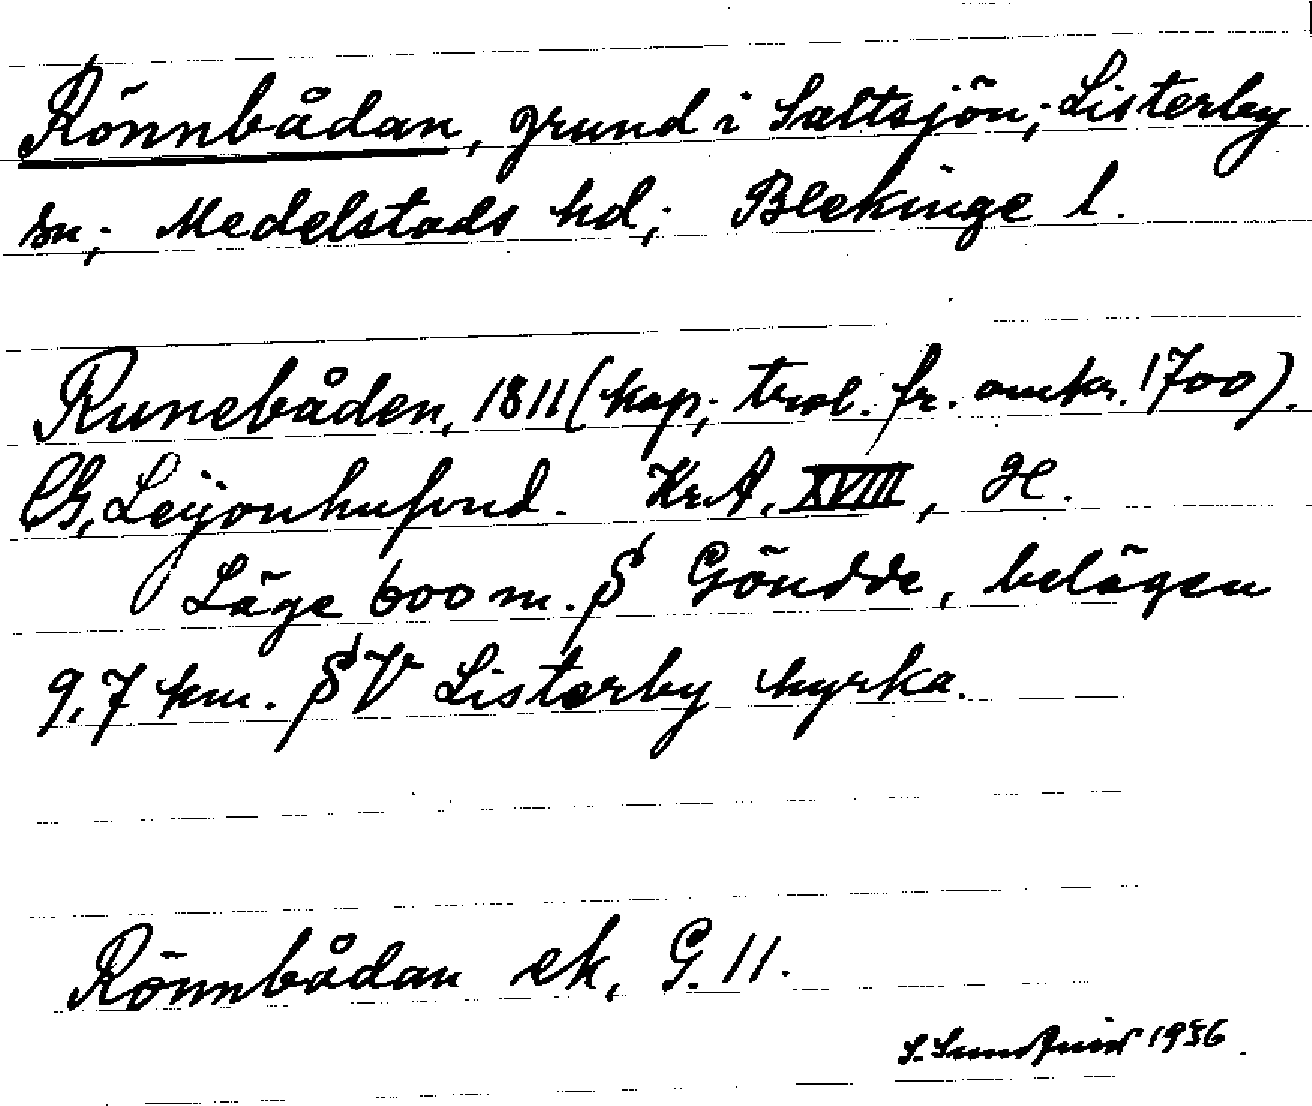 Rönnbådan, grund i Saltsjön; Listerby
sn; Medelstads hd; Blekinge l.
Runebåden, 1811 (kop; trol. fr. omkr. 1700).
Ch. Leijonhufvud. KrA. XVIII, H.
Läge 600 m. S Göndde, belägen
9,7 km. SV Listerby kyrka.
Rönnbådan ek, G. 11.
S. Sundquist 1956.